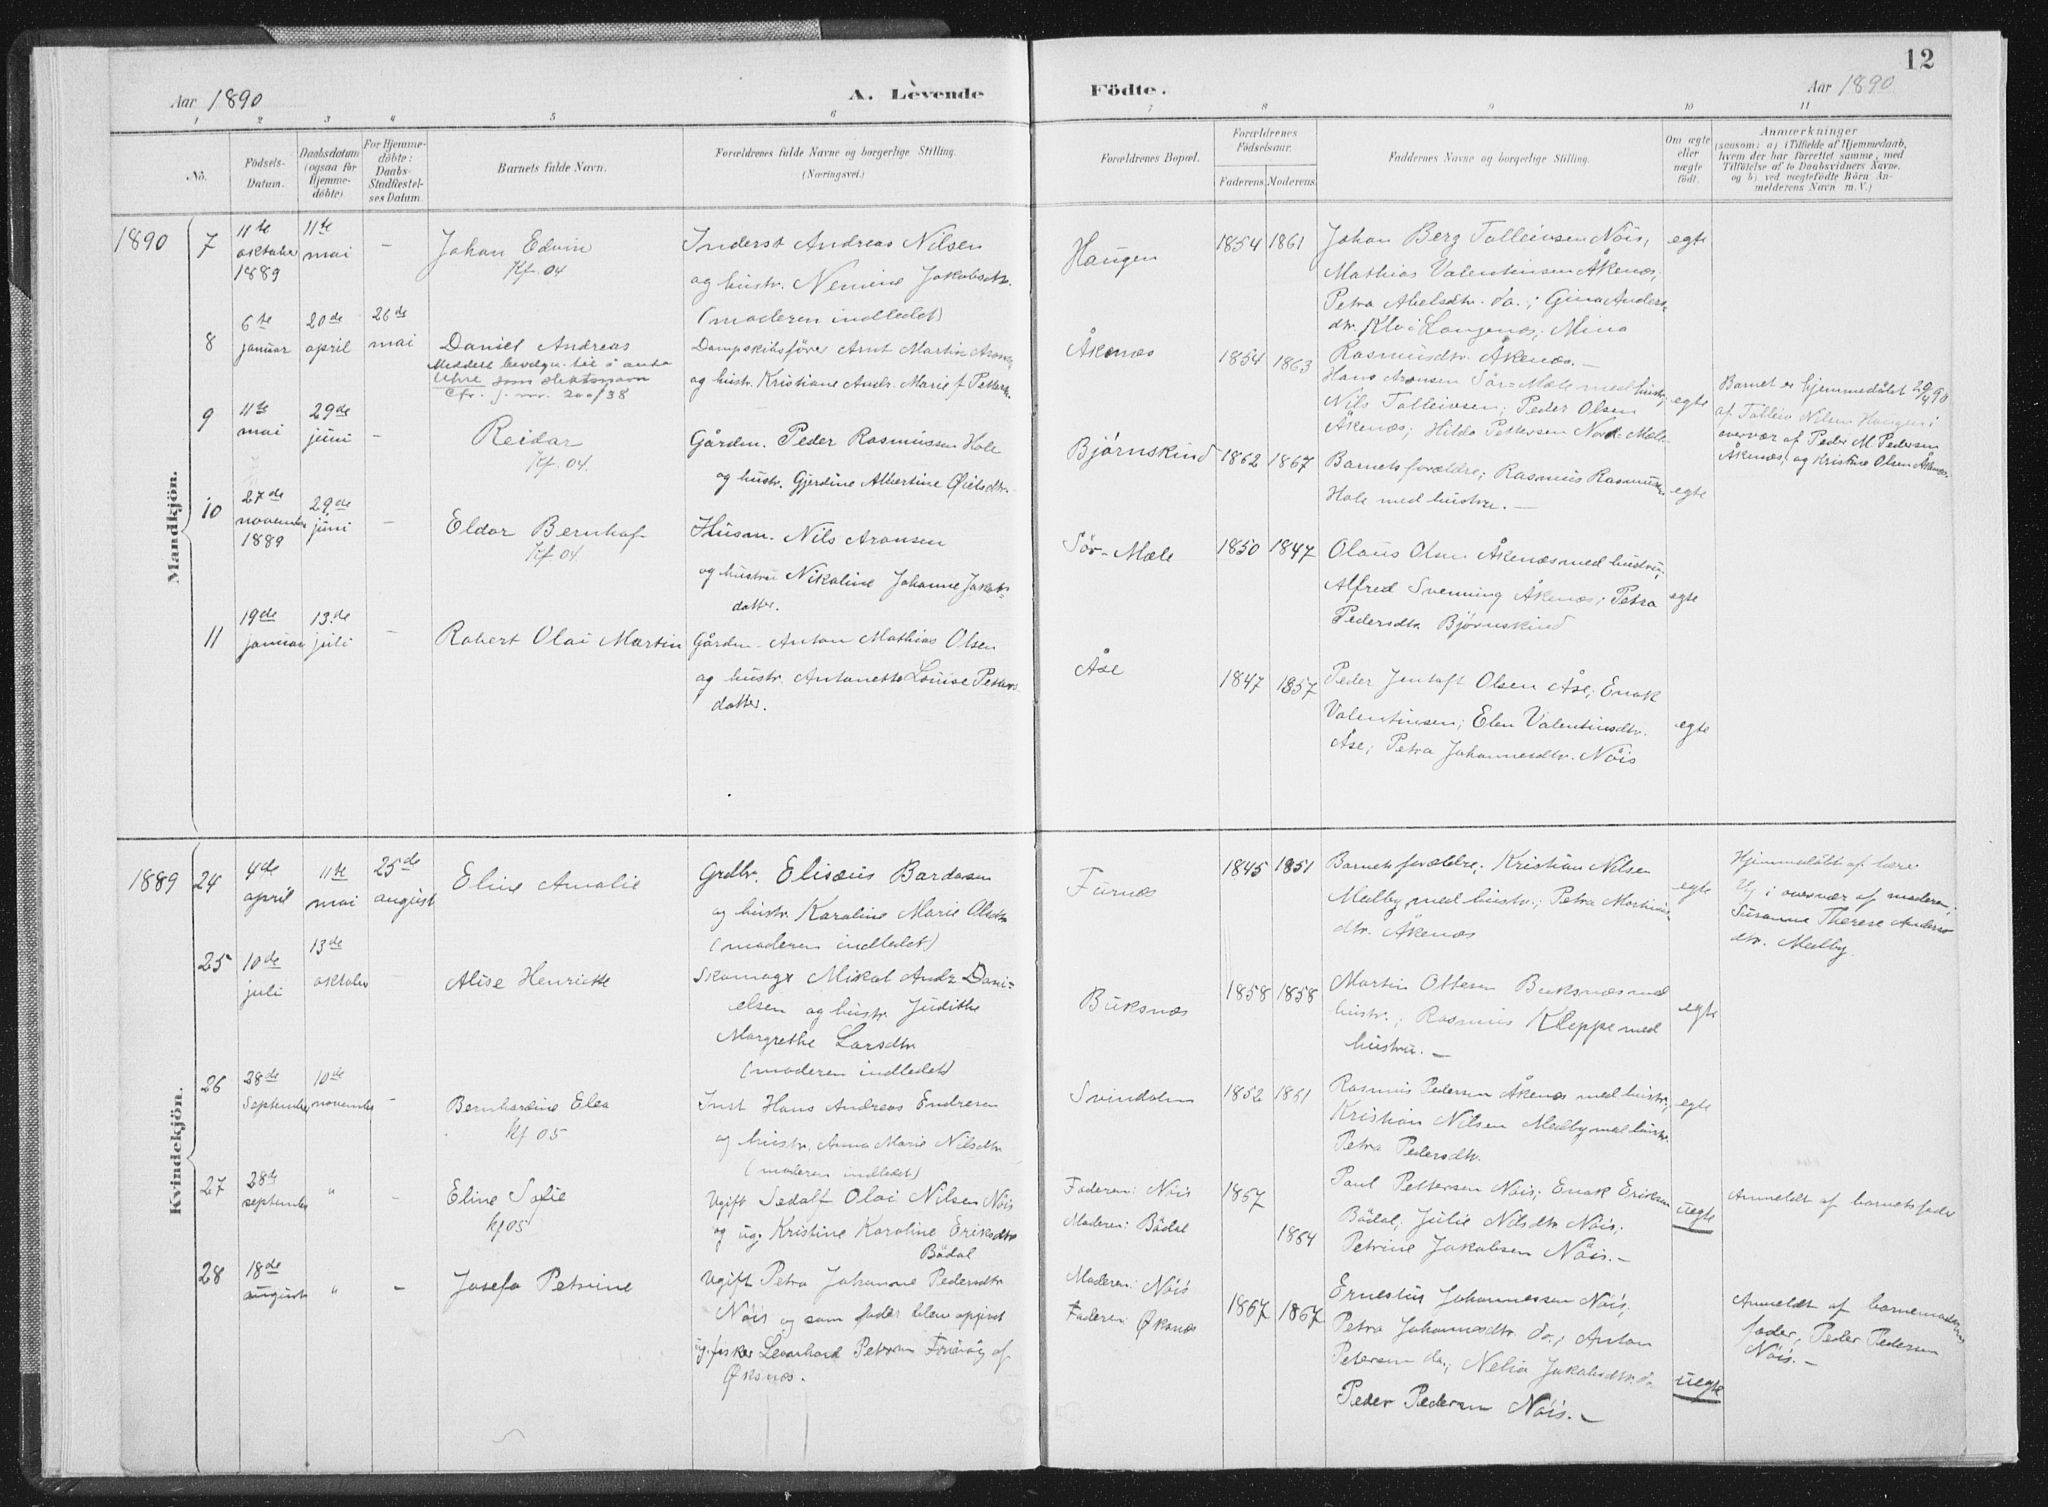 12
Aar 1890
A. Levende Födte.
Aar 1890
1 2 3 4 5 6 7 8 9 10 11
No.
Födsels-Datum.
Daabsdatum (ogsaa for Hjemme-döbte).
For Hjemme-döbte: Daabs-Stadfæstel-ses Datum.
Barnets fulde Navn.
Forældrenes fulde Navne og borgerlige Stilling.
(Næringsvei.)
Forældrenes Bopæl.
Forældrenes Födselsaar.
Faderens. Moderens.
Faddernes Navne og borgerlige Stilling.
Om ægte eller uægte födt.
Anmærkninger
(saasom: a) i Tilfælde af Hjemmedaab,
hvem der har forrettet samme, med
Tilföielse af to Daabsvidners Navne,
og b) ved uægtefödte Börn An-
melderens Navn m. V.)
Mandkjön.
1890 7 11te oktober 1889
11te mai
-
Johan Edvin
Kf. 04
Inderst Andreas Nilsen
og hustr. Nemine Jakobsdtr.
(moderen indledet)
Haugen
1854 1861
Johan Berg Tolleivsen Nöis,
Mathias Valentinsen Åkenæs,
Petra Abelsdtr. do.; Gina Anders
dtr. Klo i Langenæs, Mina
Rasmusdtr. Åkenæs.-
egte
8 6te januar
20de april
26de mai
Daniel Andreas
Meddelt bevilgn. til å anta
Uhre som slektsnavn
Cfr. j. nr. 200/38
Dampskibsförer Arnt Martin
og hustr. Kristiane Andr. Marie f. Petters.
Åkenæs
1854 1863
Hans Aronsen Sör-Mæle med hustr.,
Nils Tolleivsen; Peder Olsen
Åkenæs; Hilda Pettersen Nord-Mæle
egte
Barnet er hjemmedöbt 29/4 90
af Tolleiv Nilsen Haugen i
overvær af Peder M. Pedersen
Åkenæs, og Kristine Olsen Åkenæs.
9 11te mai
29de juni
-
Reidar
Kf. 04.
Gården. Peder Rasmussen Hole
og hustr. Gjerdine Albertine
Bjørnskind
1862 1867
Barnets forældre; Rasmus Rasmussen
Hole med hustru.-
egte
10 27de november 1889
29de juni
-
Eldor Bernhof
Kf. 04.
Husm. Nils Aronsen
og hustru Nikoline Johanne Jakobs-
datter.
Sör-Mæle
1850 1847
Olaus Olsen Åkenæs med hustru,
Alfred Svenning Åkenæs; Petra
Pedersdtr Bjørnskind
egte
11 19de januar
13.de juli
-
Robert Olai Martin
Gården. Anton Mathias Olsen
og hustr. Antonette Louise Petters-
datter.
Åse
1847 1857
Peder Jentoft Olsen Åse; Enok
Valentinsen; Elen Valentinsdtr.
Åse; Petra Johannesdtr. Nöis
egte
Kvindekjön.
1889 24 4de april
11te mai
25de august
Eline Amalie
Grdbr. Elisæus Bardosen
og hustr. Karoline Marie Olsdtr
(moderen indledet)
Furnæs
1845 1851
Barnets forældre; Kristian Nilsen
Medby med hustr.; Petra Martinus-
dtr. Åkenæs
egte
Hjemmedöbt af
i overvær af moderen,
Susanne Therese Anders
dtr. Medby.
25 10de juli
13de oktober
Alise Henriette
Skomager Mikal Andr. Dani-
elsen og hustr. Judithe
Margrethe Larsdtr
(moderen indledet)
Buksnæs
1858 1858
Martin Ottesen Buksnæs med
hustr.; Rasmus Kleppe med
hustru.-
egte
26 28de September
10de november
-
Bernhardine Elea
Kf 05
Inst Hans Andreas Endresen
og hustr. Anna Marie Nilsdtr
(moderen indledet)
Svindalen
1852 1861
Rasmus Pedersen Åkenæs med hustr.,
Kristian Nilsen Medby med hustr.
Petra Pedersdtr.
egte
27 28de september
"
-
Eline Sofie
kf 05
Ugift Sedolf Olai Nilsen Nöis
og ug. Kristine Karoline Eriksdtr
Bödal
Faderen: Nöis
Moderen: Bödal
1857
1864
Paul Pettersen Nöis; Enok Eriksen
Bödal; Julie Nilsdtr. Nöis;
Petrine Jakobsen Nöis.-
uegte
Anmeldt af barnets fader
28 18de august
"
-
Josefa Petrine
Ugift Petra Johanne Pedersdtr
Nöis og som fader blev opgivet
ug. fisker Leonhard Petersen af
Øksnæs.
Moderen: Nöis
Faderen: Øksnæs
1867 1867
Ernestus Johannessen Nöis,
Petra Johannesdtr. do.; Anton
Petersen do.; Nelia Jakobsdtr. do
Peder Pedersen Nöis.-
uegte
Anmeldt af barnemoderens
fader, Peder Pedersen
Nöis.-